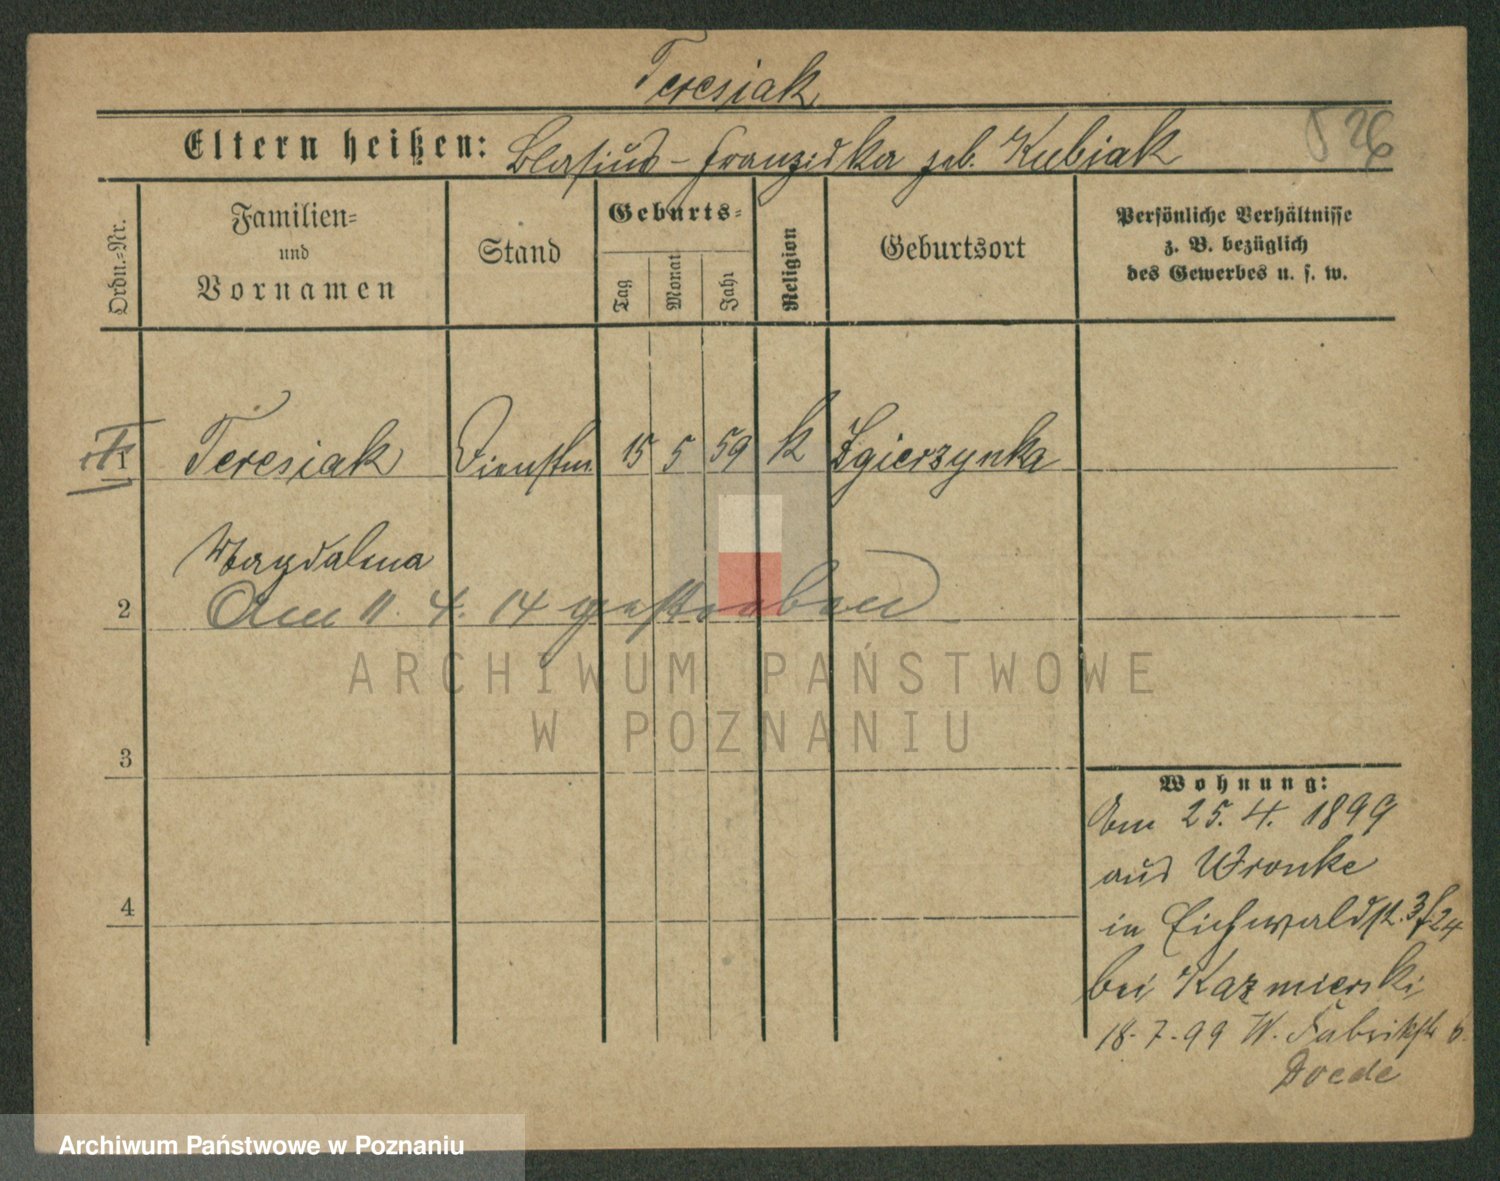 Teresiak
Eltern heißen: Blasius - Franziska geb. Kubiak
26
Ordn.-Nr.
Familien- und Vornamen
Stand
Geburts-
Tag
Monat
Jahr
Religion
Geburtsort
Persönliche Verhältnisse
z. B. bezüglich
des Gewerbes u. s. w.
1 Teresiak Dienstm. 15 5 59 k Zgierzynka
Magdalena
2 Am 11. 4. 14 gestorben
ARCHIWUM PAŃSTWOWE
W POZNANIU
3
4
Wohnung:
Am 25. 4. 1899
aus Wronke
in Eichwaldst. 3 f. 24
bei Kazmierski
18-7-99 W. Fabrikstr 6.
Doede
Archiwum Państwowe w Poznaniu